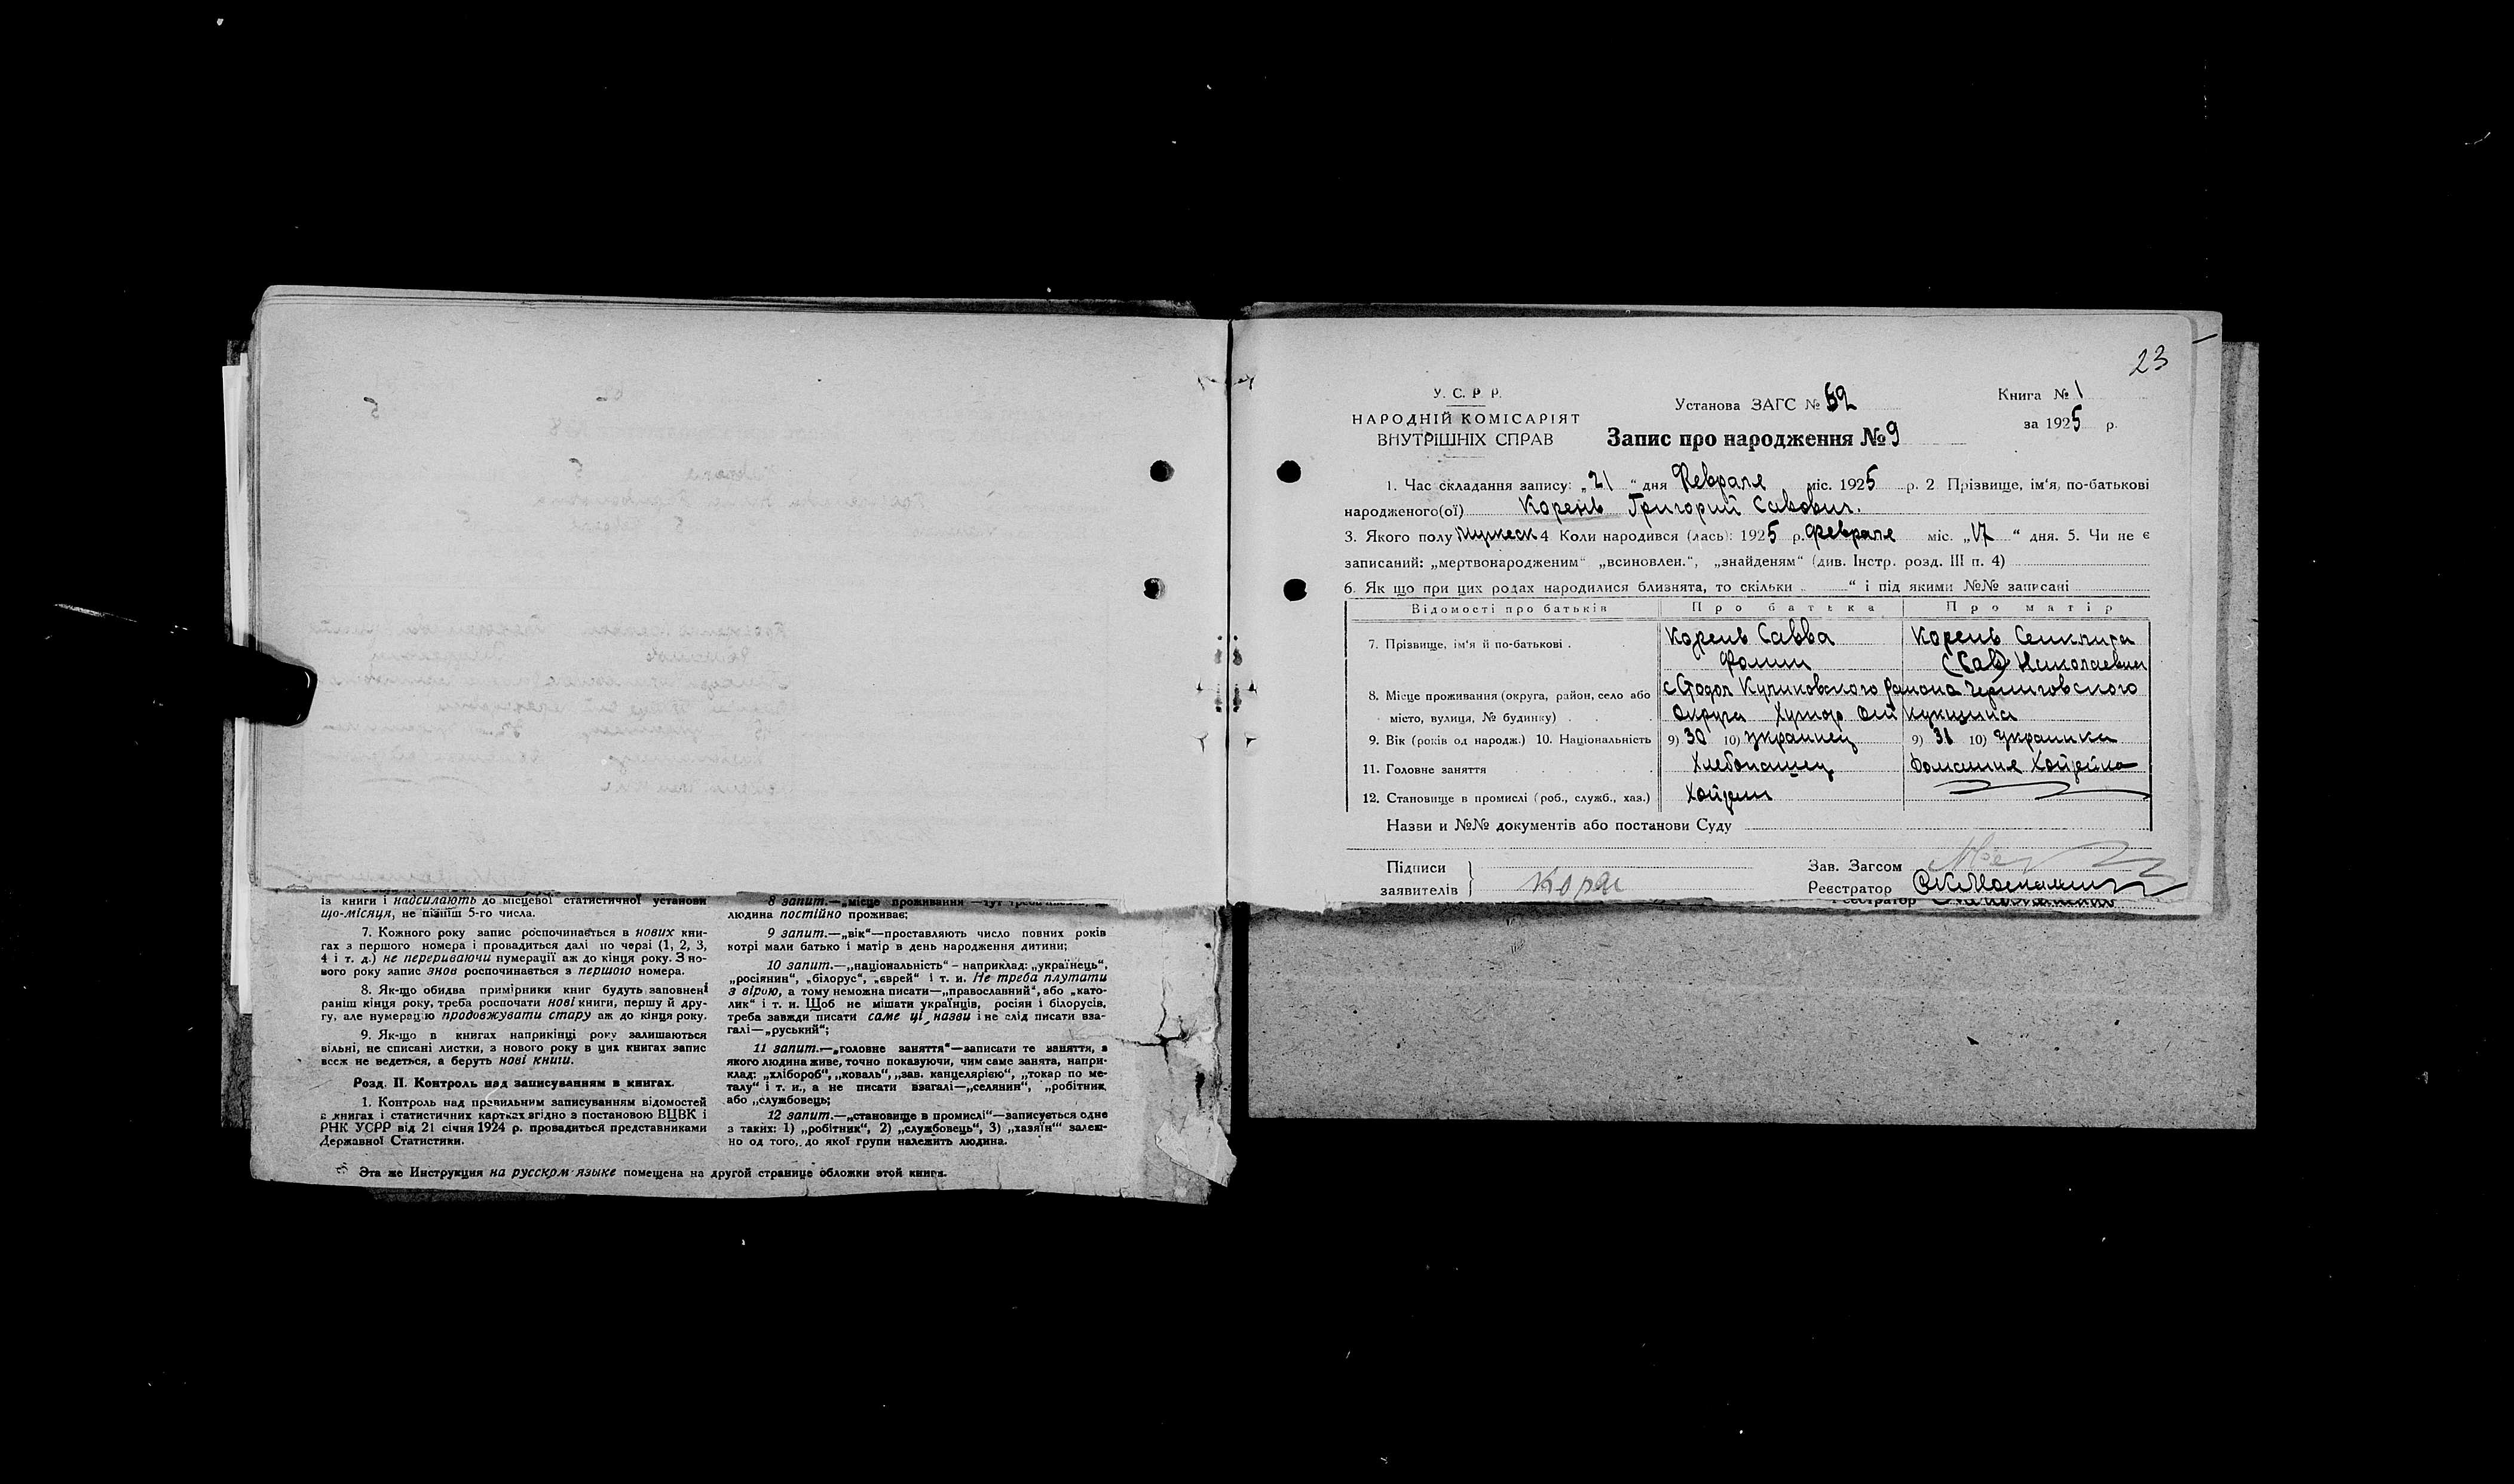 із книги і надсилають до місцевої статистичної установи
що-місяця, не пізніш 5-го числа.
7. Кожного року запис роспочинається в нових кни-
гах з першого номера і провадиться далі по черзі (1, 2, 3,
4 і т. д.) не перериваючи нумерації аж до кінця року. З но-
вого року запис знов роспочинається з першого номера.
8. Як-що обидва примірники книг будуть заповнені
раніш кінця року, треба роспочати нові книги, першу й дру-
гу, але нумерацію продовжувати стару аж до кінця року.
9. Як-що в книгах наприкінці року залишаються
вільні, не списані листки, з нового року в цих книгах запис
все ж не ведеться, а беруть нові книги.
Розд. II. Контроль над записуванням в книгах.
1. Контроль над правильним записуванням відомостей
в книгах і статистичних картках згідно з постановою ВЦВК і
РНК УСРР від 21 січня 1924 р. провадиться представниками
Державної Статистики.
8 запит.—„місце проживання
людина постійно проживає;
9 запит.—„вік“—проставляють число повних років
котрі мали батько і матір в день народження дитини;
10 запит.—„національність“ – наприклад: „українець“,
„росіянин“, „білорус“, „єврей“ і т. и. Не треба плутати
з вірою, а тому неможна писати—„православний“, або „като-
лик“ і т. и. Щоб не мішати українців, росіян і білорусів,
треба завжди писати саме ці назви і не слід писати вза-
галі—„руський“;
11 запит.—„головне заняття“—записати те заняття, з
якого людина живе, точно показуючи, чим саме занята, напри-
клад: „хлібороб“, „коваль“, „зав. канцелярією“, „токар по ме-
талу“ і т. и., а не писати взагалі—„селянин“, „робітник
або „службовець;
12 запит.—„становище в промислі“—записується одне
з таких: 1) „робітник“, 2) „службовець“, 3) „хазяїн“ залеж-
но од того, до якої групи належить людина.
Эта же Инструкция на русском языке помещена на другой странице обложки этой книги.
23
У. С. Р Р.
НАРОДНІЙ КОМІСАРІЯТ
ВНУТРІШНІХ СПРАВ
Установа ЗАГС № 52
Книга № 1
за 1925 р.
Запис про народження № 9
1. Час складання запису: „21“ дня Февраля міс. 1925 р. 2 Прізвище, ім‘я, по-батькові
народженого(ої) Корень Григорий Савович.
3. Якого полу Мужеск 4 Коли народився (лась): 1925 р. Февраля міс. „17“ дня. 5. Чи не є
записаний: „мертвонародженим“ „всиновлен.“, „знайденям“ (див. Інстр. розд. III п. 4)
6. Як що при цих родах народилися близнята, то скільки “ і під якими №№ записані
Відомості про батьків Про батька Про матір
7. Прізвище, ім‘я й по-батькові Корень Савва Корень
Фомич Николаевна
8. Місце проживання (округа, район, село або с Куликовского района Черниговского
місто, вулиця, № будинку) округа Хутор
9. Вік (років од народж.) 10. Національність 9) 30 10) Украинец 9) 31 10) Украинка
11. Головне заняття Хлебопашец Домашняя Хозяйка
12. Становище в промислі (роб., служб., хаз.) Хозяин
Назви и №№ документів або постанови Суду
Підписи
заявителів
Зав. Загсом
Реєстратор
Реєстратор